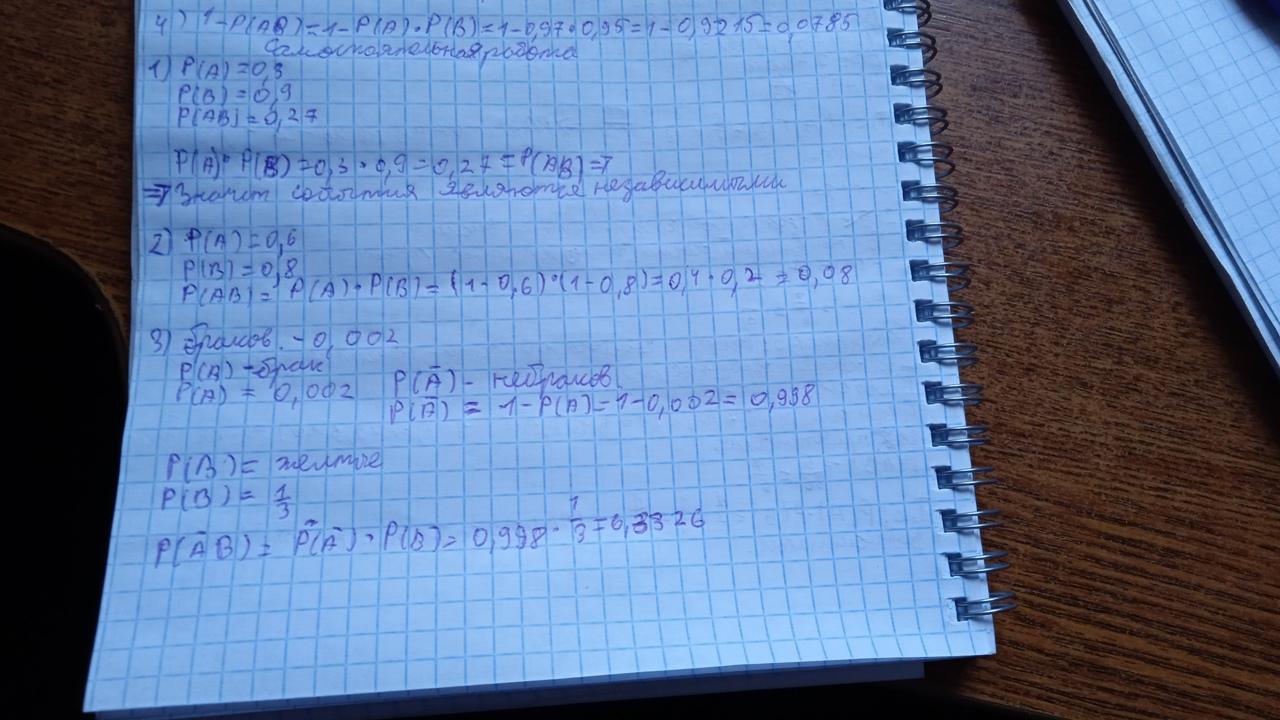 4) 1-P(AB)=1-P(A)•P(B)=1-0,97•0,95=1-0,9215=0,0785
Самостоятельная работа
1) P(A)=0,3
P(B)=0,9
P(AB)=0,27
P(A)•P(B)=0,3•0,9=0,27=P(AB)=>
=> Значит события являются независимыми
2) P(A)=0,6
P(B)=0,8
P(AB)= P(A)•P(B)=(1-0,6)•(1-0,8)=0,4•0,2=0,08
3) браков. - 0,002
P(A)-брак
P(A) = 0,002 P(Ā)- небраков.
P(Ā) = 1-P(A)=1-0,002=0,998
P(B)= желтые
P(B)= 1/3
P(ĀB)= P(Ā)•P(B)= 0,998•1/3=0,3326